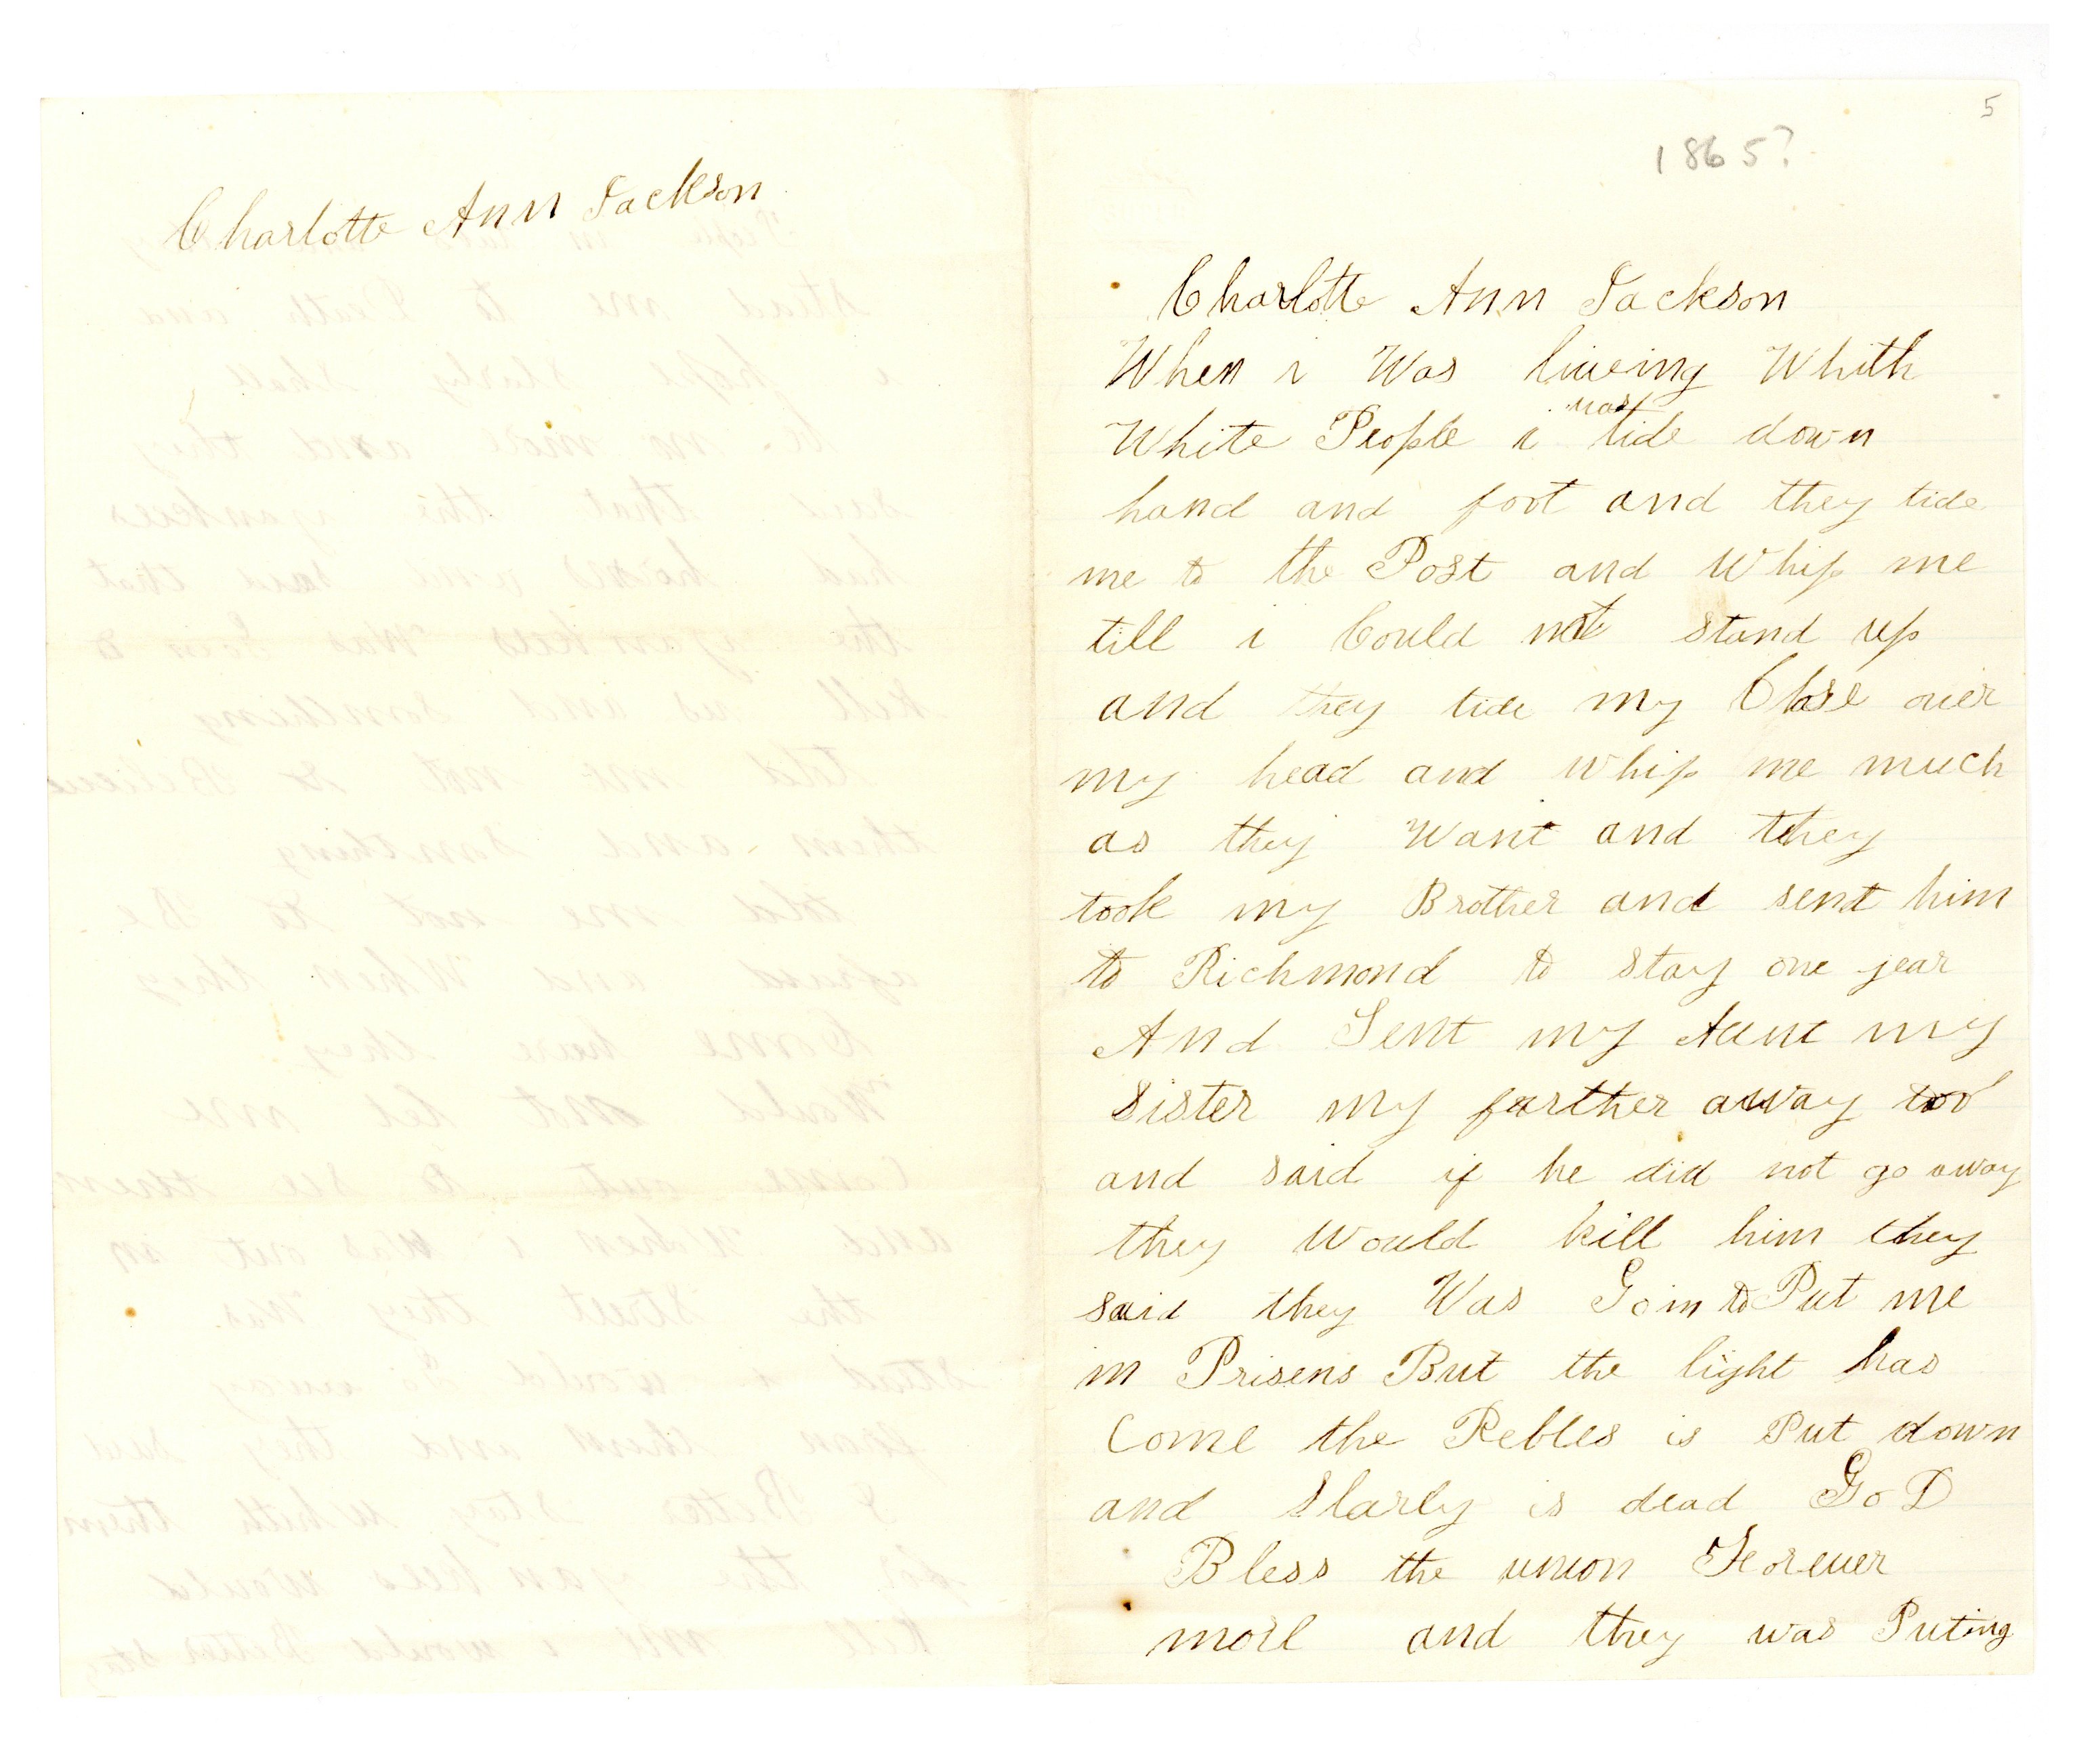 Charlotte Ann Jackson
5
1865?
Charlotte Ann Jackson
When i Was liveing Whith
White People i was tide down
hand and foot and they tide
me to the Post and Whip me
till i Could not stand up
and they tide my Close over
my head and whip me much
as they Want and they
took my Brother and sent him
to Richmond to stay one year
And Sent my Aunt my
Sister my farther away too
and said if he did not go away
they Would kill him they
said they Was Goin to Put me
in Prisens But the light has
Come the Rebles is Put down
and Slarly is dead GoD
Bless the union Forever
more and they was Puting